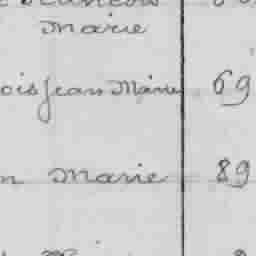 Marie
ois Jean Marie 69
n Marie 89